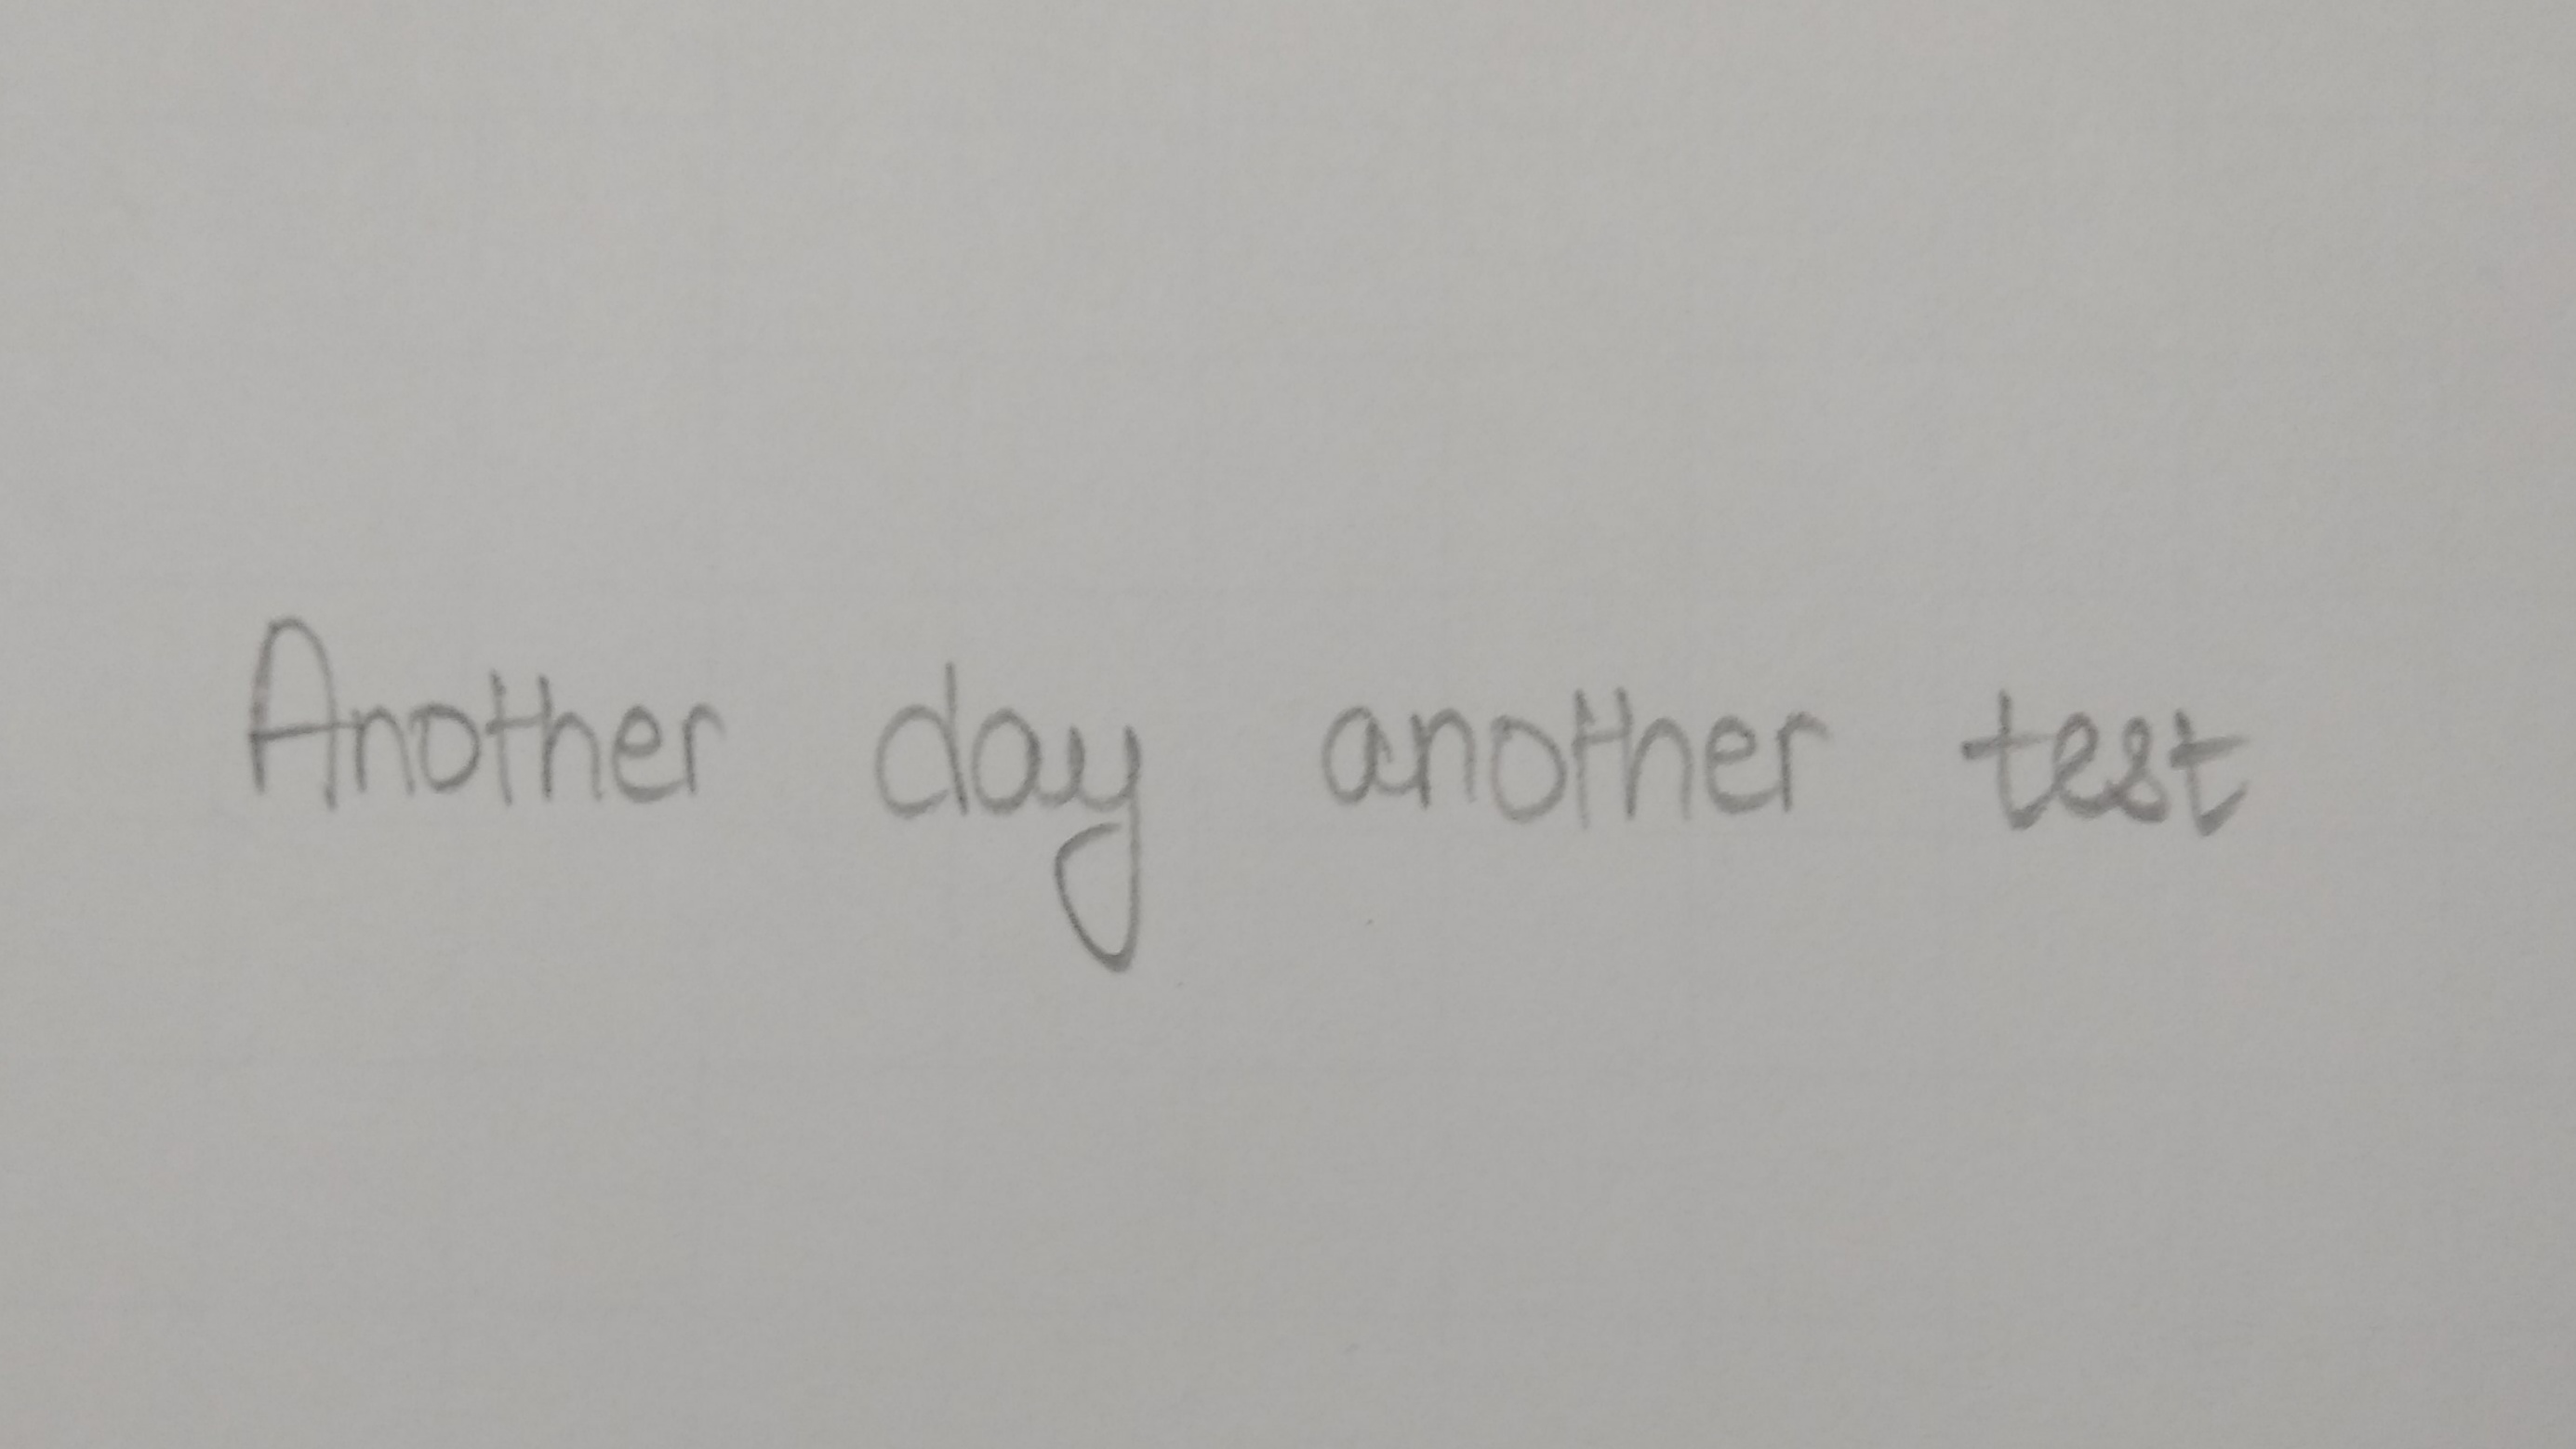 Another day another test